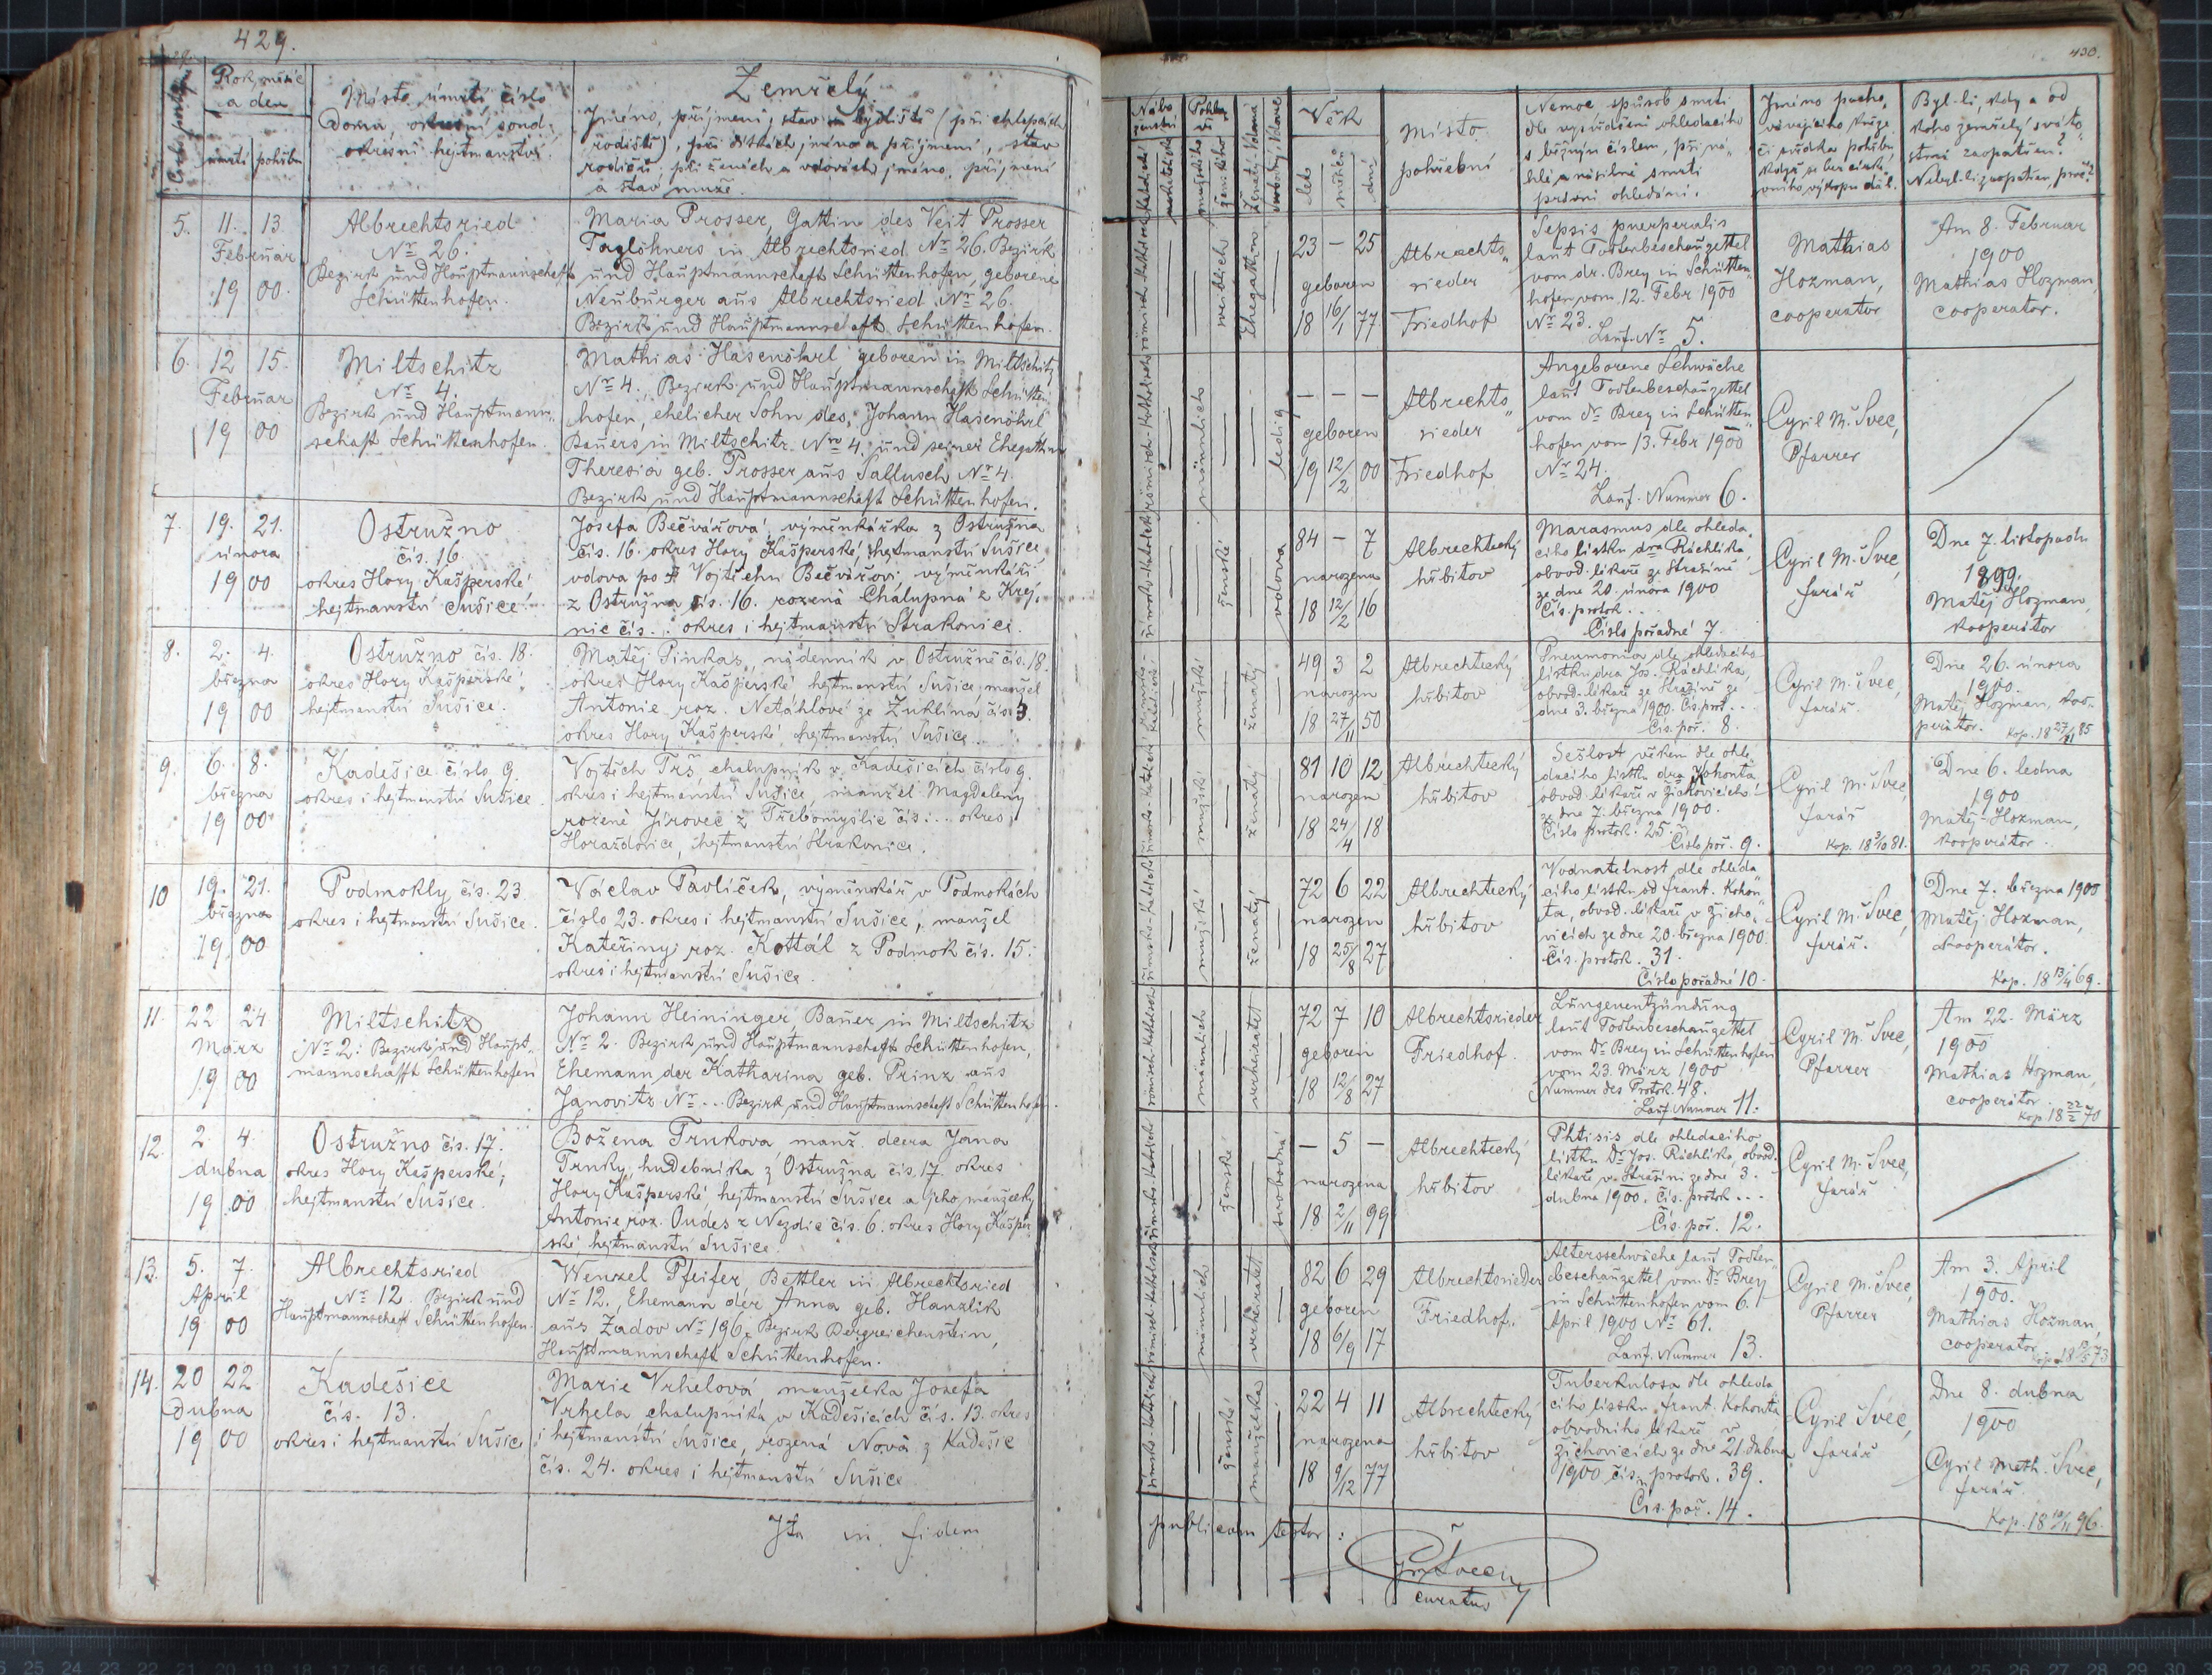 429.
Rok, měsíc
a den
úmrtí pohřbu
Místo úmrtí, číslo
domu, okresní soud,
okresní hejtmanství.
Zemřelý
Jméno, příjmení, stav a bydliště (při chlapcích
rodiště), při dítkách, jméno a příjmení, stav
rodičů; při ženách a vdovách jméno, příjmení
a stav muže.
5. 11. 13
Februar
19 00.
Albrechtsried
Nr 26.
Bezirk und Hauptmannschaft
Schüttenhofen.
Maria Prosser, Gattin des Veit Prosser
Taglöhners in Albrechtsried Nr 26. Bezirk
und Hauptmannschaft Schüttenhofen, geborene
Neuburger aus Albrechtsried Nr 26.
Bezirk und Hauptmannschaft Schüttenhofen.
6. 12 15.
Februar
19 00
Miltschitz
Nr 4.
Bezirk und Hauptmann-
schaft Schüttenhofen.
Mathias Hasenöhrl geboren in Miltschitz
Nr 4. Bezirk und Hauptmannschaft Schütten-
hofen, ehelicher Sohn des Johann Hasenöhrl
Bauers in Miltschitz Nro 4. und seiner Ehegattin
Theresia geb. Prosser aus Sallusch Nr 4
Bezirk und Hauptmannschaft Schüttenhofen.
7. 19. 21.
února
19 00
Ostružno
čís. 16.
okres Hory Kašperské
hejtmanství Sušice.
Josefa Bečvářová, výměnkářka z Ostružna
čís. 16. okres Hory Kašperské, hejtmanství Sušice
vdova po Vojtěchu Bečvářovi, výměnkáři
z Ostružna čís. 16. rozená Chalupná z Krej-
nic čís. . okres i hejtmanství Strakonice.
8. 2. 4.
března
19 00
Ostružno čís. 18.
okres Hory Kašperské,
hejtmanství Sušice.
Matěj Pinkas, nádenník v Ostružně čís. 18.
okres Hory Kašperské hejtmanství Sušice, manžel
Antonie roz. Netáhlové ze Žuklína čís. 3.
okres Hory Kašperské, hejtmanství Sušice.
9. 6. 8.
března
19 00
Kadešice číslo 9.
okres i hejtmanství Sušice.
Vojtěch Trš, chalupník v Kadešicích číslo 9.
okres i hejtmanství Sušice, manžel Magdaleny
rozené Jírovec z Třebomyslic čís. ... okres
Horažďovice, hejtmanství Strakonice.
10 19. 21.
března
19 00
Podmokly čís. 23
okres i hejtmanství Sušice.
Václav Pavlíček, výměnkář v Podmokách
číslo 23. okres i hejtmanství Sušice, manžel
Kateřiny roz. Kottál z Podmok čís. 15.
okres i hejtmanství Sušice.
11. 22 24
März
19 00
Miltschitz
Nr 2. Bezirk und Haupt-
mannschafft Schüttenhofen
Johann Heininger, Bauer in Miltschitz
Nr 2. Bezirk und Hauptmannschaft Schüttenhofen,
Ehemann der Katharina geb. Prinz aus
Janovitz Nr ... Bezirk und Hauptmannschaft Schüttenhofen.
12. 2. 4.
dubna
19 00
Ostružno čís. 17.
okres Hory Kašperské,
hejtmanství Sušice.
Božena Trnkova manž. dcera Jana
Trnky, hudebníka z Ostružna čís. 17. okres
Hory Kašperské hejtmanství Sušice a jeho manželky
Antonie roz. Oudes z Nezdic čís. 6. okres Hory Kašper-
ské, hejtmanství Sušice.
13. 5. 7.
April
19 00
Albrechtsried
Nr 12. Bezirk und
Hauptmannschaft Schüttenhofen.
Wenzel Pfeifer, Bettler in Albrechtsried
Nr 12., Ehemann der Anna geb. Hanzlik
aus Zadov Nr 196, Bezirk Bergreichenstein,
Hauptmannschaft Schüttenhofen.
14. 20 22
Dubna
19 00
Kadešice
čís. 13.
okres i hejtmanství Sušice
Marie Vrhelová, manželka Josefa
Vrhela chalupníka v Kadešicích čís. 13. okres
i hejtmanství Sušice, rozená Nová z Kadešic
čís. 24. okres i hejtmanství Sušice
Ita in fidem
430.
Věk
léta měsíců dní
Místo
pohřební
Nemoc, způsob smrti
dle vysvědčení ohledacího
s běžným číslem, při ná-
hlé a násilné smrti
právní ohledání.
Jméno pocho-
vávajícího kněze
či svědka pohřbu
když se bez círke-
vního výkopu dál.
Byl-li, kdy a od
koho zemřelý sváto-
stmi zaopatřen?
Nebyl-li zaopatřen, proč?
weiblich
Ehegattin
23 – 25
geboren
18 16/1 77
Albrechts-
rieder
Friedhof
Sepsis puerperalis
laut Todtenbeschauzettel
vom dr. Brey in Schütten-
hofen vom 12. Febr 1900
Nr 23.
Lauf. Nr 5.
Mathias
Hozman,
cooperator
Am 8. Februar
1900
Mathias Hozman,
cooperator.
männlich
ledig
– – –
geboren
19 12/2 00
Albrechts-
rieder
Friedhof
Angeborene Schwäche
laut Todtenbeschauzettel
vom dr Brey in Schütten-
hofen vom 13. Febr 1900
Nr 24.
Lauf. Nummer 6.
Cyril M. Švec,
Pfarrer
ženské
vdova
84 – 7
narozena
18 12/2 16
Albrechtecký
hřbitov
Marasmus dle ohleda-
cího lístku dra Ráchlíka,
obvod. lékaře ze Strašína
ze dne 20. února 1900
Čís. protok. ..
Číslo pořadné 7.
Cyril M. Švec,
farář
Dne 7. listopadu
1899.
Matěj Hozman,
kooperátor
mužské
ženatý
49 3 2
narozen
18 27/11 50
Albrechtecký
hřbitov
Pneumonia dle ohledacího
lístku dra Jos. Ráchlíka,
obvod. lékaře ze Strašíně ze
dne 3. března 1900. Čís. prot. ..
Čís. poř. 8.
Cyril M. Švec,
farář.
Dne 26. února
1900.
Matěj Hozman, koo-
perátor. kop. 18 27/11 85
mužské
ženatý
81 10 12
narozen
18 24/4 18
Albrechtecký
hřbitov
Sešlost věkem dle ohle-
dacího lístku dra Kohouta
obvod. lékaře v Žichovicích
ze dne 7. března 1900.
Číslo protok. 25.
Číslo poř. 9.
Cyril M. Švec,
farář
kop. 18 3/10 81.
Dne 6. ledna
1900
Matěj Hozman,
kooperátor.
mužské
ženatý
72 6 22
narozen
18 25/8 27
Albrechtecký
hřbitov
Vodnatelnost dle ohleda-
cího lístku od Frant. Kohou-
ta, obvod. lékaře v Žicho-
vicích ze dne 20. března 1900.
Čís. protok. 31.
Číslo pořadné 10.
Cyril M. Švec,
farář.
Dne 7. března 1900
Matěj Hozman,
kooperátor.
Kop. 18 13/4 69.
männlich
verheiratet
72 7 10
geboren
18 12/8 27
Albrechtsrieder
Friedhof.
Lungenentzündung
laut Todtenbeschauzettel
vom Dr Brey in Schüttenhofen
vom 23. März 1900
Nummer des Protok. 48.
Lauf. Nummer 11.
Cyril M. Švec,
Pfarrer
Am 22. März
1900
Mathias Hozman,
cooperátor.
kop 18 22/2 70
ženské
svobodná
– 5 –
narozena
18 2/11 99
Albrechtecký
hřbitov
Phtisis dle ohledacího
lístku Dr Jos. Ráchlíka, obvod.
lékaře v Strašíni ze dne 3.
dubna 1900. čís. protok. ...
Čís. poř. 12.
Cyril M. Švec,
farář
männlich
verheiratet
82 6 29
geboren
18 6/9 17
Albrechtsrieder
Friedhof.
Altersschwäche laut Todten-
beschauzettel vom Dr Brey
in Schüttenhofen vom 6.
April 1900 Nr 61.
Lauf. Nummer 13.
Cyril M. Švec,
Pfarrer
Am 3. April
1900.
Mathias Hozman,
cooperator.
ženské
manželka
22 4 11
narozena
18 9/12 77
Albrechtecký
hřbitov
Tuberkulosa dle ohleda-
cího lístku Frant. Kohouta
obvodního lékaře v
Žichovicích ze dne 21. dubna
1900 čís. protok. 39.
Čís. poř. 14.
Cyril Švec,
farář
Dne 8. dubna
1900
Cyril Meth. Švec,
farář.
Kop. 18 10/11 96.
publicam testor :
curatus